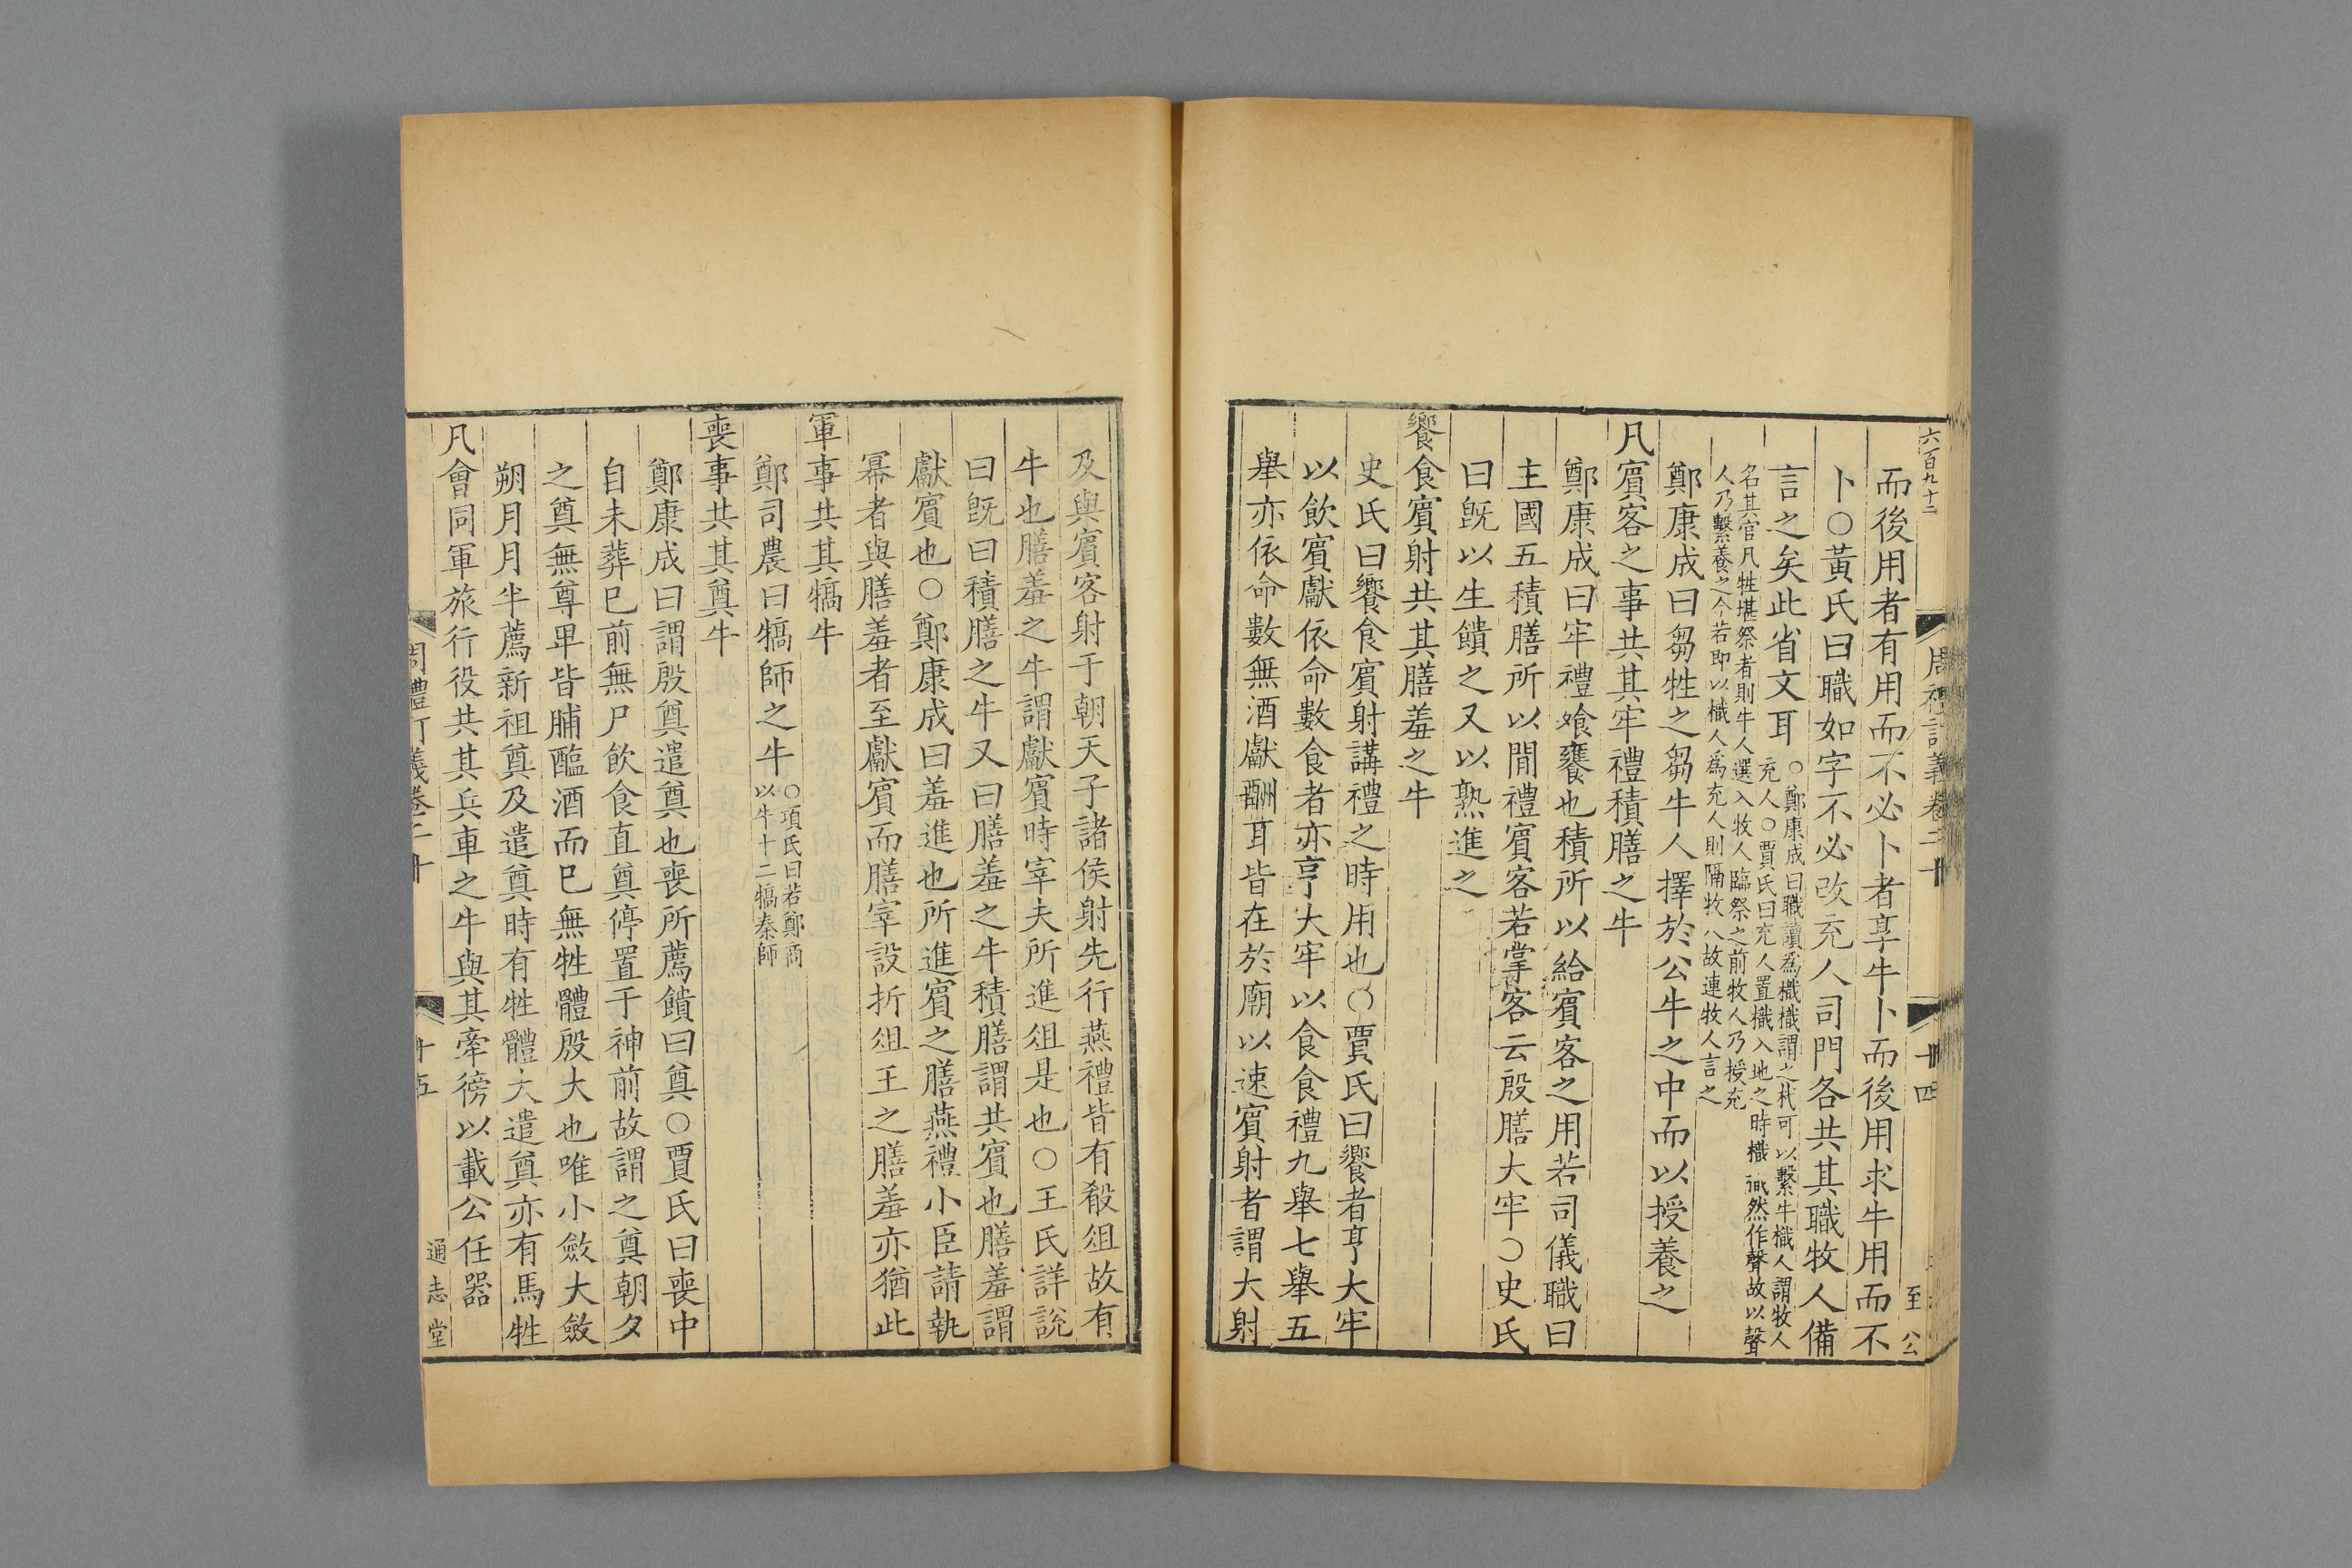 六百九十二
周禮訂義卷二十
十四
至 公
而後用者有用而不必卜者享牛卜而後用求牛用而不
卜○黃氏曰職如字不必改充人司門各共其職牧人備
言之矣此省文耳○鄭康成曰職讀為樴樴謂之杙可以繫牛樴人謂牧人
充人○賈氏曰充人置樴入地之時樴樴然作聲故以聲
名其官凡牲堪祭者則牛人選入牧人臨祭之前牧人乃授充
人乃繫養之今若即以樴人為充人則隔牧人故連牧人言之
鄭康成曰芻牲之芻牛人擇於公牛之中而以授養之
凡賔客之事共其牢禮積膳之牛
鄭康成曰牢禮飧饔也積所以給賔客之用若司儀職曰
主國五積膳所以間禮賔客若掌客云殷膳大牢○史氏
曰旣以生饋之又以熟進之
饗食賔射共其膳羞之牛
史氏曰饗食賔射講禮之時用也○賈氏曰饗者亨大牢
以飲賔獻依命數食者亦亨大牢以食食禮九舉七舉五
舉亦依命數無酒獻酬耳皆在於廟以速賔射者謂大射
及與賔客射于朝天子諸侯射先行燕禮皆有殽俎故有
牛也膳羞之牛謂獻賔時宰夫所進俎是也○王氏詳說
曰旣曰積膳之牛又曰膳羞之牛積膳謂共賔也膳羞謂
獻賔也○鄭康成曰羞進也所進賔之膳燕禮小臣請執
冪者與膳羞者至獻賔而膳宰設折俎王之膳羞亦猶此
軍事共其犒牛
鄭司農曰犒師之牛○項氏曰若鄭商
以牛十二犒秦師
喪事共其奠牛
鄭康成曰謂殷奠遣奠也喪所薦饋曰奠○賈氏曰喪中
自未葬巳前無尸飲食直奠停置于神前故謂之奠朝夕
之奠無尊卑皆脯醢酒而巳無牲體殷大也唯小斂大斂
朔月月半薦新祖奠及遣奠時有牲體大遣奠亦有馬牲
凡會同軍旅行役共其兵車之牛與其牽徬以載公任器
周禮訂義卷二十
十五
通志堂